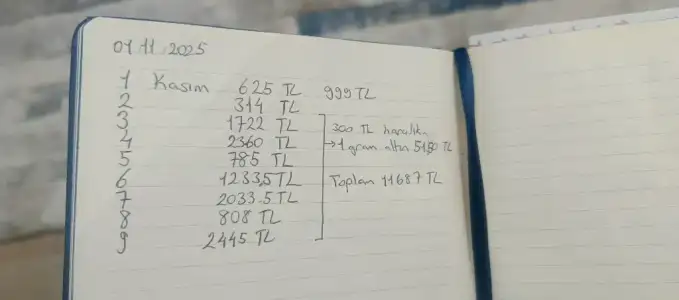 01.11.2025
1 Kasım 625 TL 999 TL
2 314 TL
3 1722 TL 300 TL harçlık
4 2360 TL → 1 gram altın 5480 TL
5 785 TL
6 1233,5 TL Toplam 11687 TL
7 2033.5 TL
8 808 TL
9 2445 TL